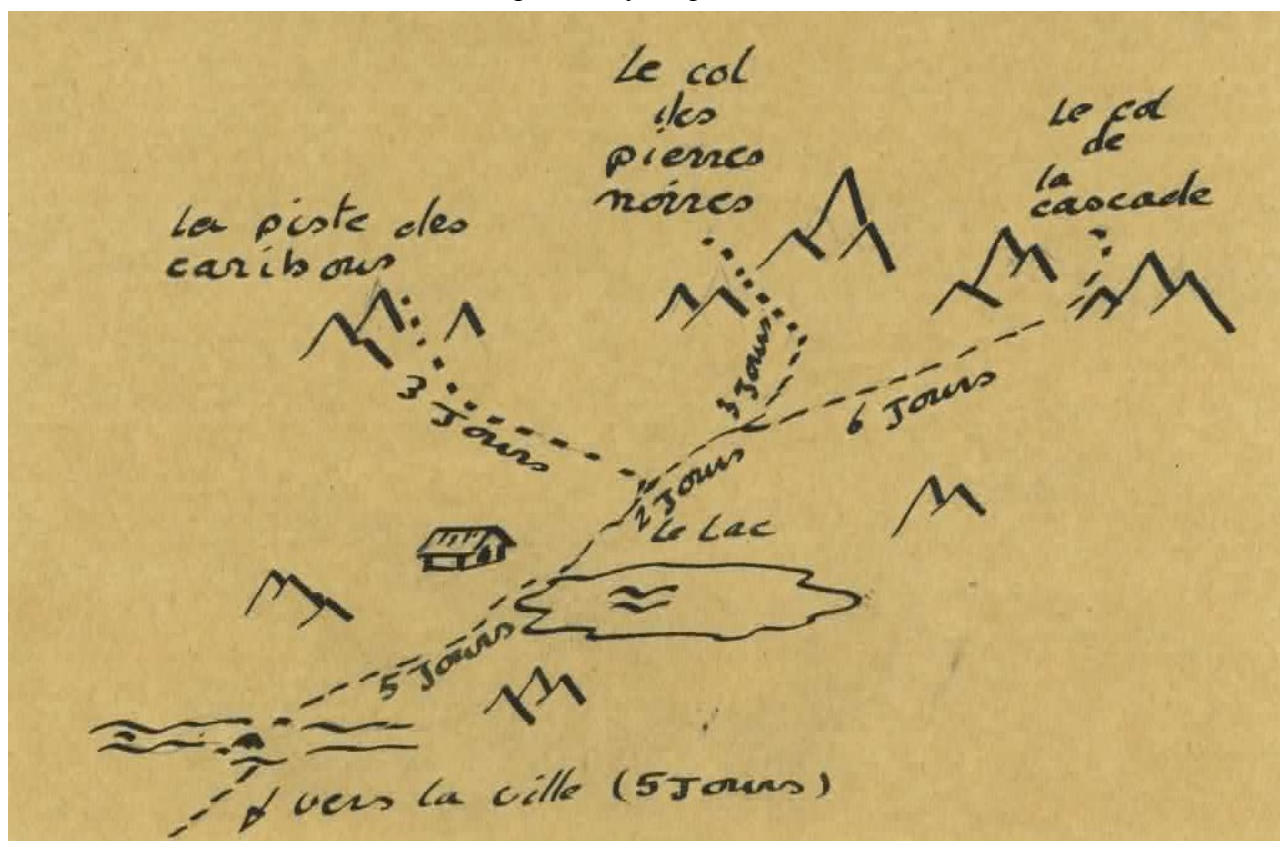 La piste des
caribous
Le col
des
pierres
noires
Le col
de
la
cascade
3 Jours
3 Jours
6 Jours
2 Jours
Le Lac
5 Jours
vers la ville (5 Jours)